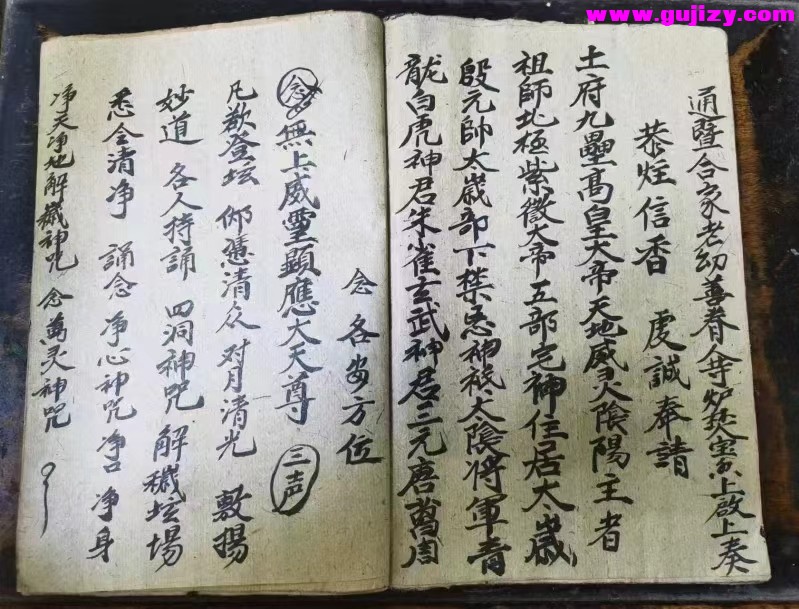 www.gujizy.com
通暨合家老幼善眷人等炉焚宝上啟上奏
恭炷信香 虔誠奉請
土府九壘髙皇大帝天地威灵陰陽主者
祖師北極紫微大帝五部宅神住居太歲
殷元帥太歲部下禁忌神祇太陰将軍青
龙白虎神君朱雀玄武神君三元唐葛周
念 各安方位
念 無上威靈顯應大天尊 三声
凡欲登坛 仰凴清众 对月清光 敷揚
妙道 各人持誦 四洞神咒 解穢坛場
悉令清净 誦念净心神咒净口净身
净天净地解穢神咒 念萬灵神咒